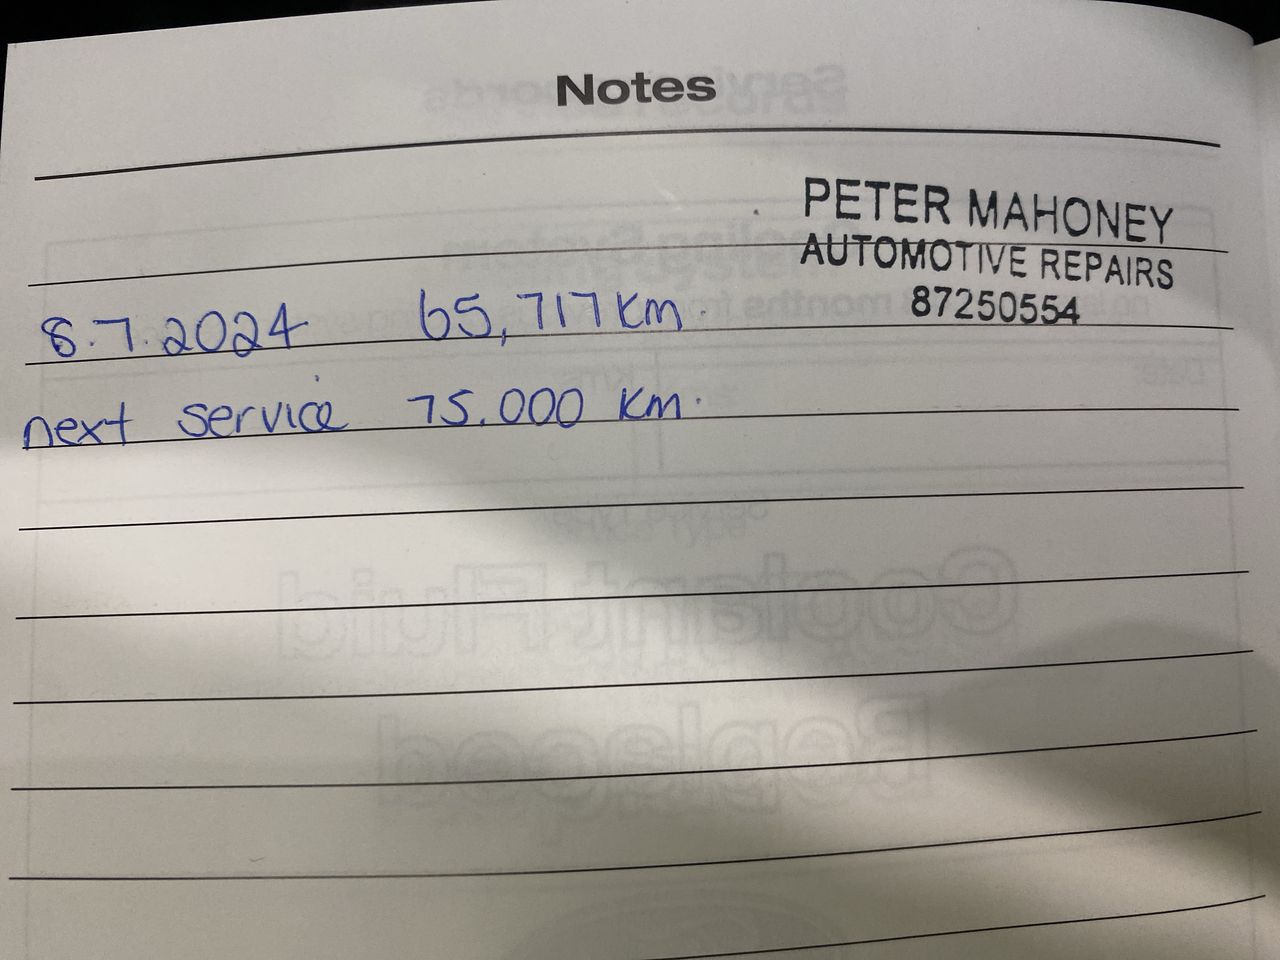 Notes
PETER MAHONEY
AUTOMOTIVE REPAIRS
87250554
8.7.2024 65,717 km.
next service 75.000 km.